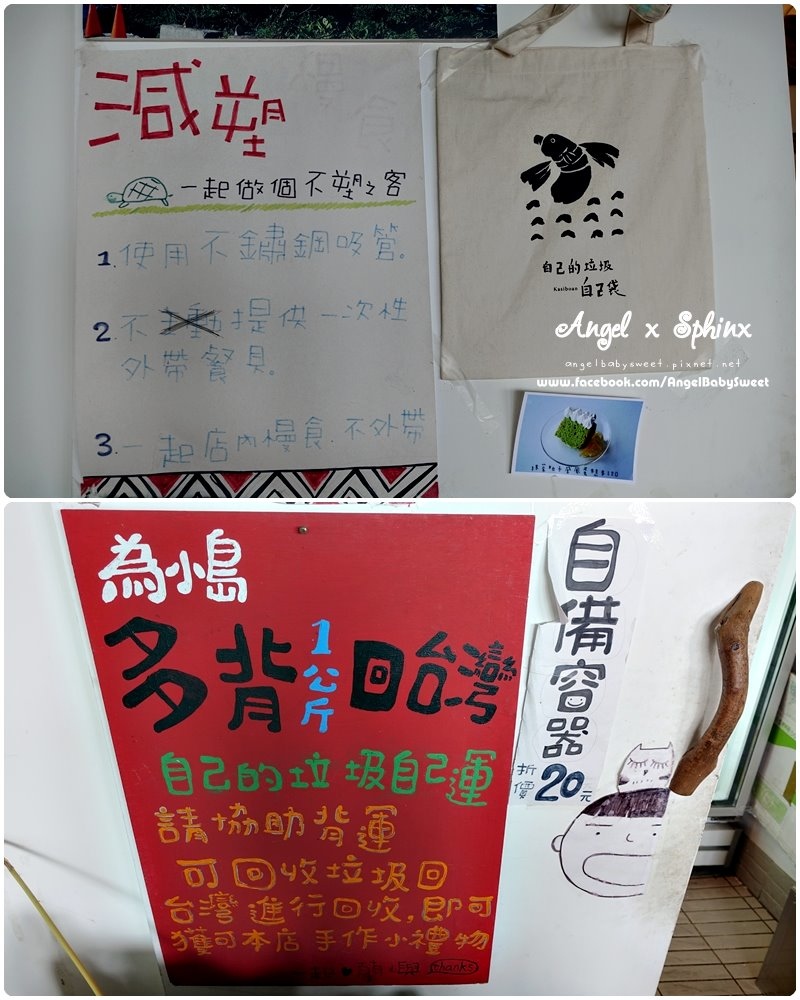 減塑
一起做個不塑之客
1. 使用不鏽鋼吸管。
2. 不提供一次性
外帶餐具。
3. 一起店內慢食.不外帶
自己的垃圾
Kasiboan 自己袋
Angel x Sphinx
angelbabysweet.pixnet.net
www.facebook.com/AngelBabySweet
為小島
多背1公斤回台灣
自己的垃圾自己運
請協助背運
可回收垃圾回
台灣進行回收,即可
獲可本店手作小禮物
thanks
自備容器
折價20元